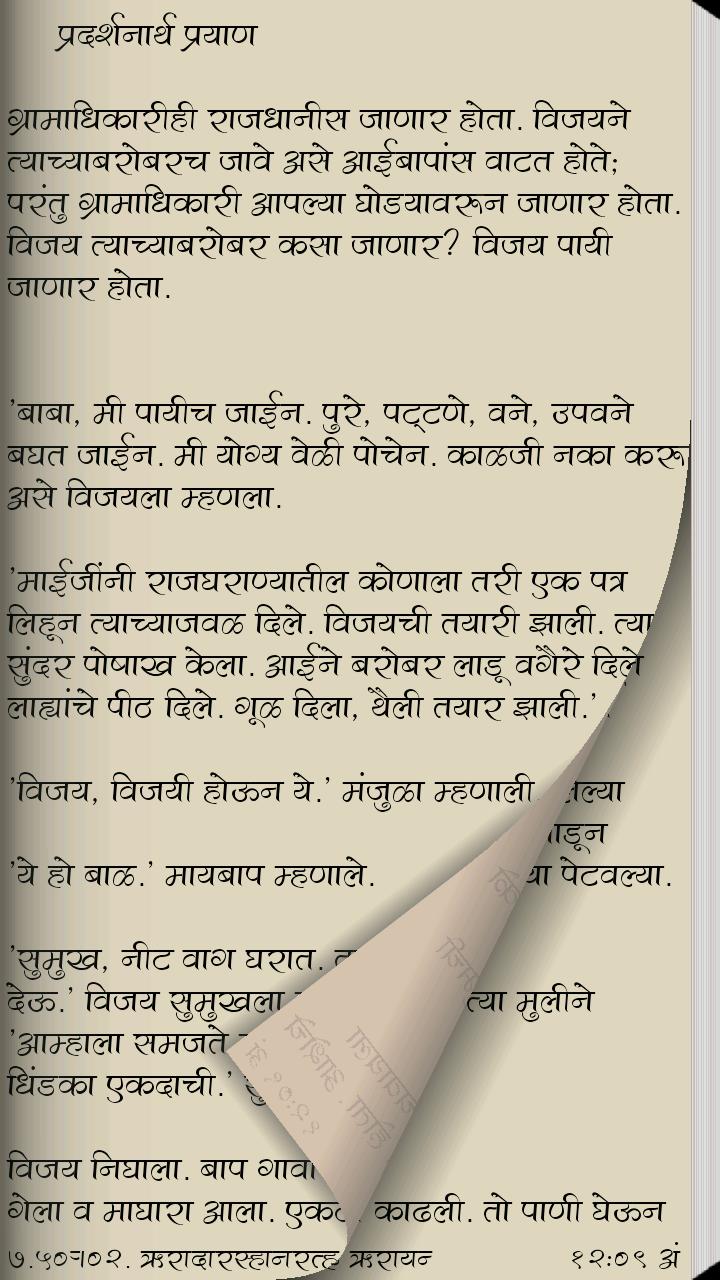 प्रदर्शनार्थ प्रयाण
ग्रामाधिकारीही राजधानीस जाणार होता. विजयने
त्याच्याबरोबरच जावे असे आईबापांस वाटत होते;
परंतु ग्रामाधिकारी आपल्या घोडयावरून जाणार होता.
विजय त्याच्याबरोबर कसा जाणार? विजय पायी
जाणार होता.
'बाबा, मी पायीच जाईन. पुरे, पट्टणे, वने, उपवने
बघत जाईन. मी योग्य वेळी पोचेन. काळजी नका करू
असे विजयला म्हणला.
'माईजींनी राजघराण्यातील कोणाला तरी एक पत्र
लिहून त्याच्याजवळ दिले. विजयची तयारी झाली. त्या
सुंदर पोषाख केला. आईने बरोबर लाडू वगैरे दिले
लाह्यांचे पीठ दिले. गूळ दिला, थैली तयार झाली.'
'विजय, विजयी होऊन ये.' मंजुळा म्हणाली
'ये हो बाळ.' मायबाप म्हणाले. पेटवल्या.
'सुमुख, नीट वाग घरात.
देऊ.' विजय सुमुखला त्या मुलीने
'आम्हाला समजते
धिंडका एकदाची.'
विजय निघाला. बाप
गेला व माघारा आला. काढली. तो पाणी घेऊन
१२:०९